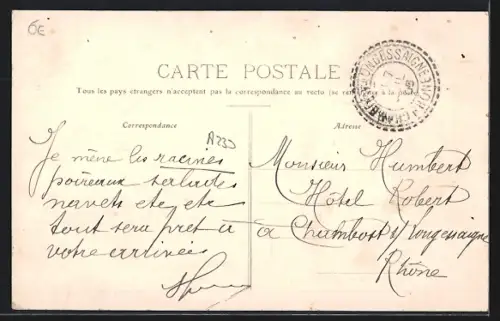 6€
CARTE POSTALE
Tous les pays étrangers n'acceptent pas la correspondance au recto (se
Correspondance
A233
Adresse
Je mène les racines
poireaux salades
navets etc, etc
tout sera prêt à
votre arrivée
Monsieur Humbert
Hôtel Robert
à Chambost s/ Longessaigne
Rhône